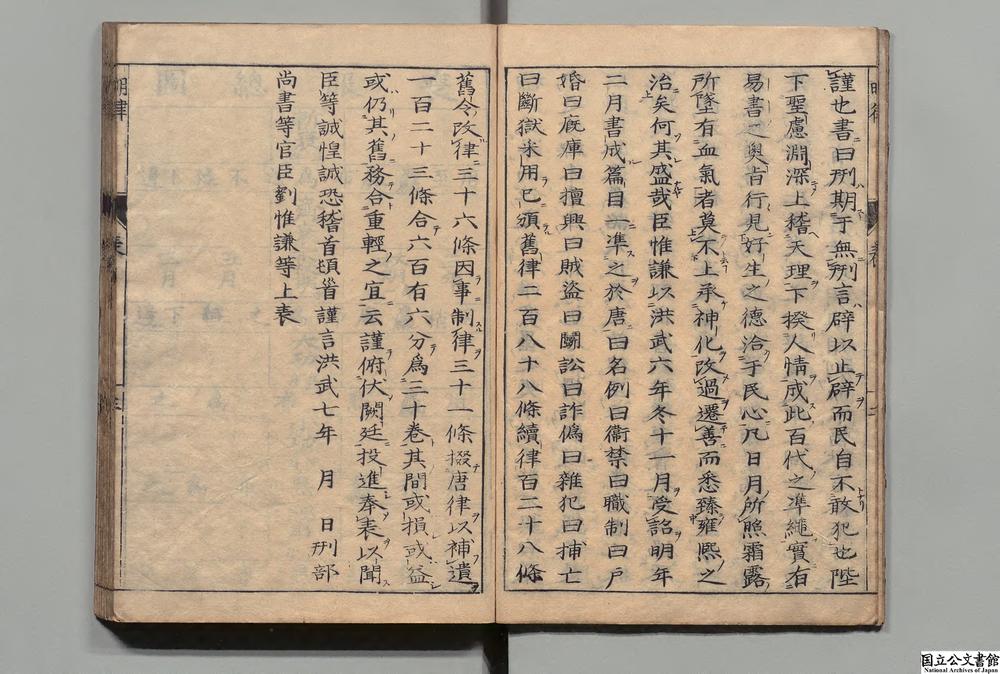 謹也書曰刑期于無刑言辟以止辟而民自不敢犯也陛
下聖慮淵深上稽天理下揆人情成此百代之凖繩實有
易書之奥旨行見好生之德洽于民心凡日月所照霜露
所墜有血氣者莫不上承神化改過遷善而悉臻雍熙之
治矣何其盛哉臣惟謙以洪武六年冬十一月受詔明年
二月書成篇目一凖之於唐曰名例曰衞禁曰職制曰戸
婚曰廐庫曰擅興曰賊盜曰鬭訟曰詐偽曰雜犯曰捕亡
曰斷獄采用已頒舊律二百八十八條續律百二十八條
舊令改律三十六條因事制律三十一條掇唐律以補遺
一百二十三條合六百有六分爲三十卷其間或損或益
或仍其舊務合重輕之宜云謹俯伏闕廷投進奉表以聞
臣等誠惶誠恐稽首頓首謹言洪武七年　月　日刑部
尚書等官臣劉惟謙等上表
明律
国立公文書館
National Archives of Japan